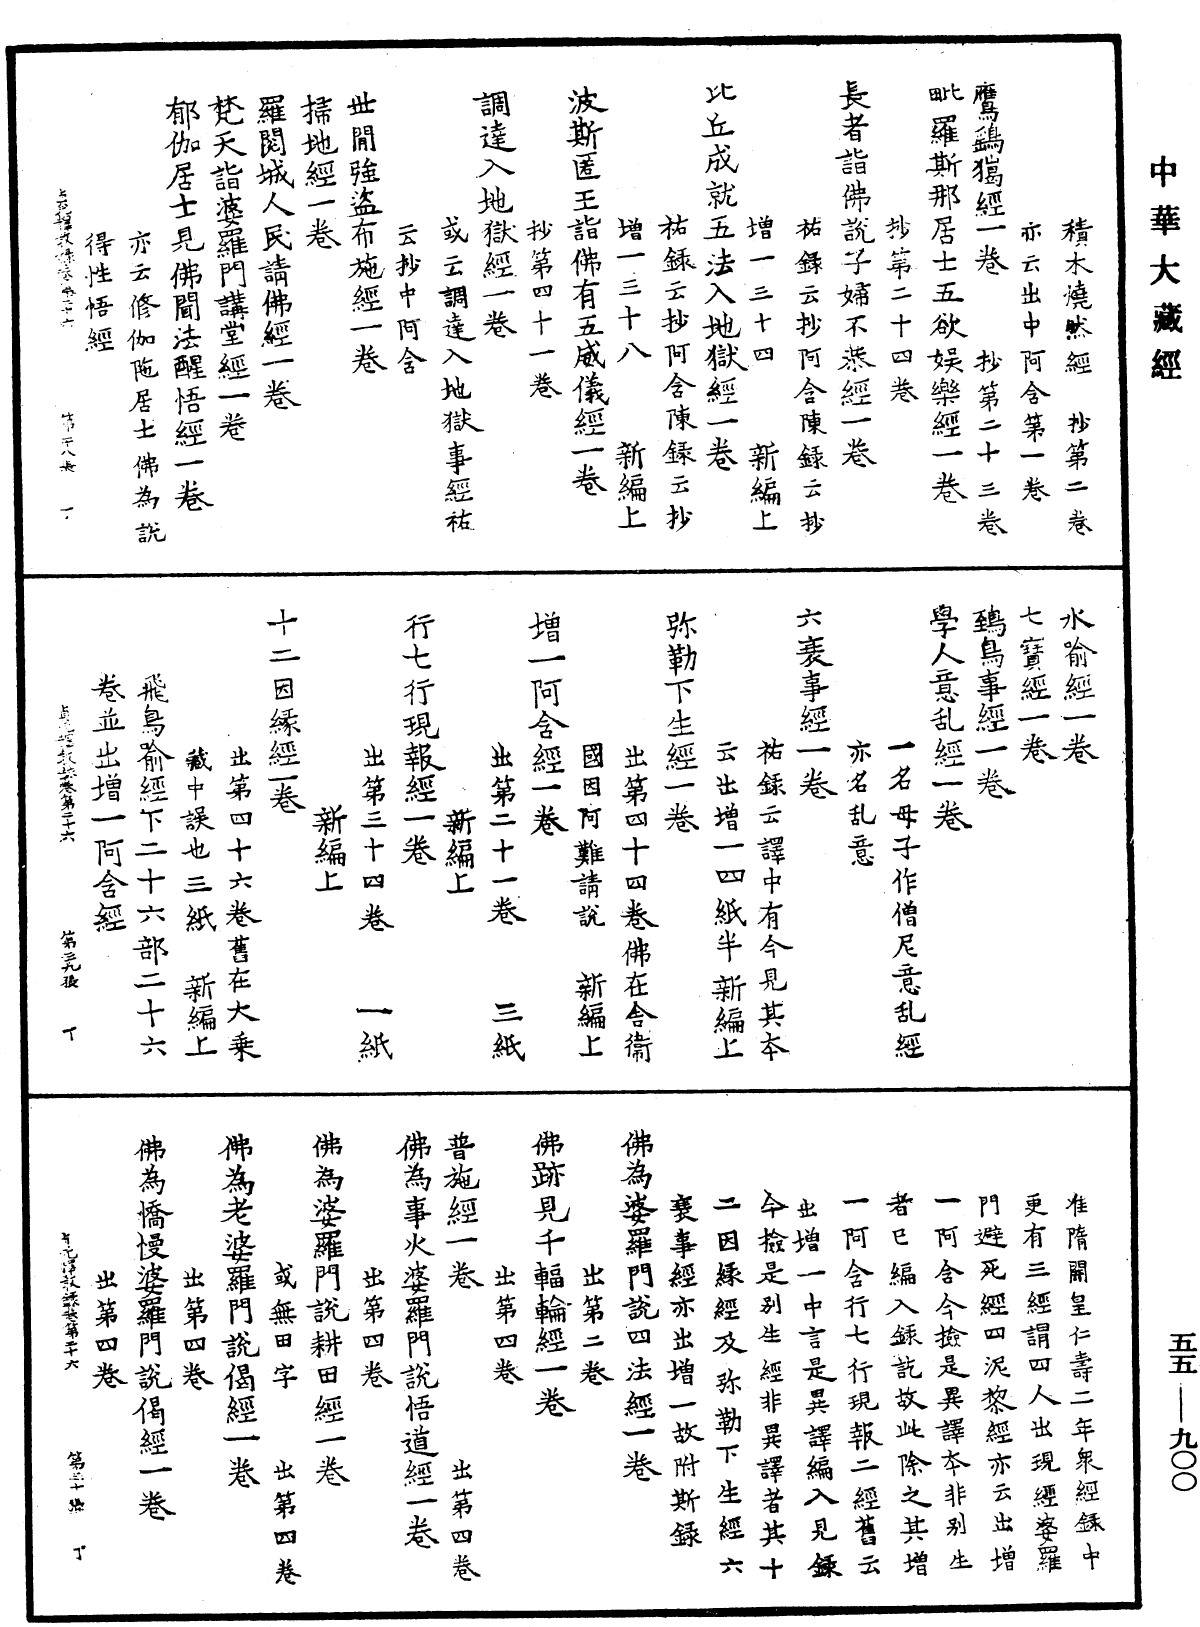 中華大藏經
積木燒然經　抄第二卷
亦云出中阿含第一卷
鷹鷂獦經一卷　抄第二十三卷
毗羅斯那居士五欲娛樂經一卷
抄第二十四卷
長者詣佛說子婦不恭經一卷
祐錄云抄阿含陳錄云抄
增一三十四　新編上
比丘成就五法入地獄經一卷
祐錄云抄阿含陳錄云抄
增一三十八　新編上
波斯匿王詣佛有五威儀經一卷
抄第四十一卷
調達入地獄經一卷
或云調達入地獄事經祐
云抄中阿含
世間強盜布施經一卷
掃地經一卷
羅閱城人民請佛經一卷
梵天詣婆羅門講堂經一卷
郁伽居士見佛聞法醒悟經一卷
亦云修伽陁居士佛為說
得性悟經
水喻經一卷
七寶經一卷
鵄鳥事經一卷
學人意乱經一卷
一名母子作僧尼意乱經
亦名乱意
六衰事經一卷
祐錄云譯中有今見其本
云出增一四紙半　新編上
弥勒下生經一卷
出第四十四卷佛在舍衛
國因阿難請說　新編上
增一阿含經一卷
出第二十一卷　三紙
新編上
行七行現報經一卷
出第三十四卷　一紙
新編上
十二因緣經一卷
出第四十六卷舊在大乗
藏中誤也三紙　新編上
飛鳥喻經下二十六部二十六
卷並出增一阿含經
准隋開皇仁壽二年衆經錄中
更有三經謂四人出現經婆羅
門避死經四泥黎經亦云出增
一阿含今撿是異譯本非別生
者已編入錄訖故此除之其增
一阿含行七行現報二經舊云
出增一中言是異譯編入見錄
今撿是別生經非異譯者其十
二因緣經及弥勒下生經六
衰事經亦出增一故附斯錄
佛為婆羅門說四法經一卷
出第二卷
佛跡見千輻輪經一卷
出第四卷
普施經一卷　出第四卷
佛為事火婆羅門說悟道經一卷
出第四卷
佛為婆羅門說耕田經一卷
或無田字　出第四卷
佛為老婆羅門說偈經一卷
出第四卷
佛為憍慢婆羅門說偈經一卷
出第四卷
五五—九〇〇